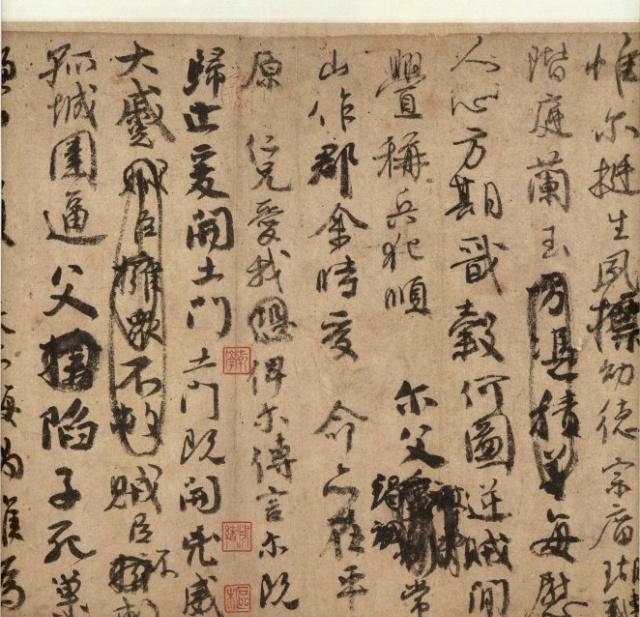 惟尔挺生夙標幼德宗廟瑚
階庭蘭玉方憑積善每慰
人心方期戩穀何圖逆賊間
釁稱兵犯順 尔父竭誠常
山作郡余時受 命亦在平
原 仁兄愛我恐俾尔傳言尔既
歸止爰開土門土門既開兇威
大蹙賊臣擁衆不救賊臣不擁救
孤城圍逼父擒陷子死巢